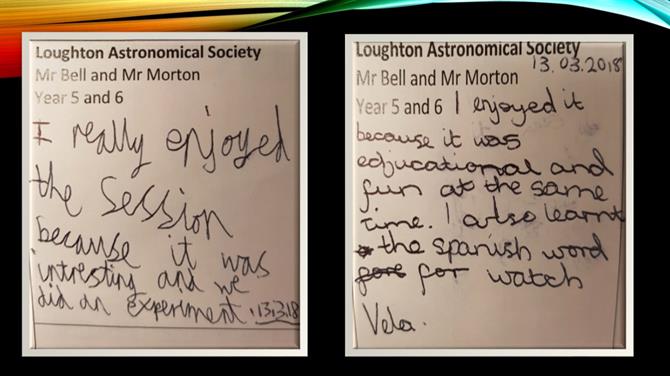 Loughton Astronomical Society
Mr Bell and Mr Morton
Year 5 and 6
I really enjoyed
the session
because it was
intresting and we
did an experiment. 13.3.18
Loughton Astronomical Society
13.03.2018
Mr Bell and Mr Morton
Year 5 and 6 I enjoyed it
because it was
edjucational and
fun at the same
time. I also learnt
the spanish word
for watch
Vela.